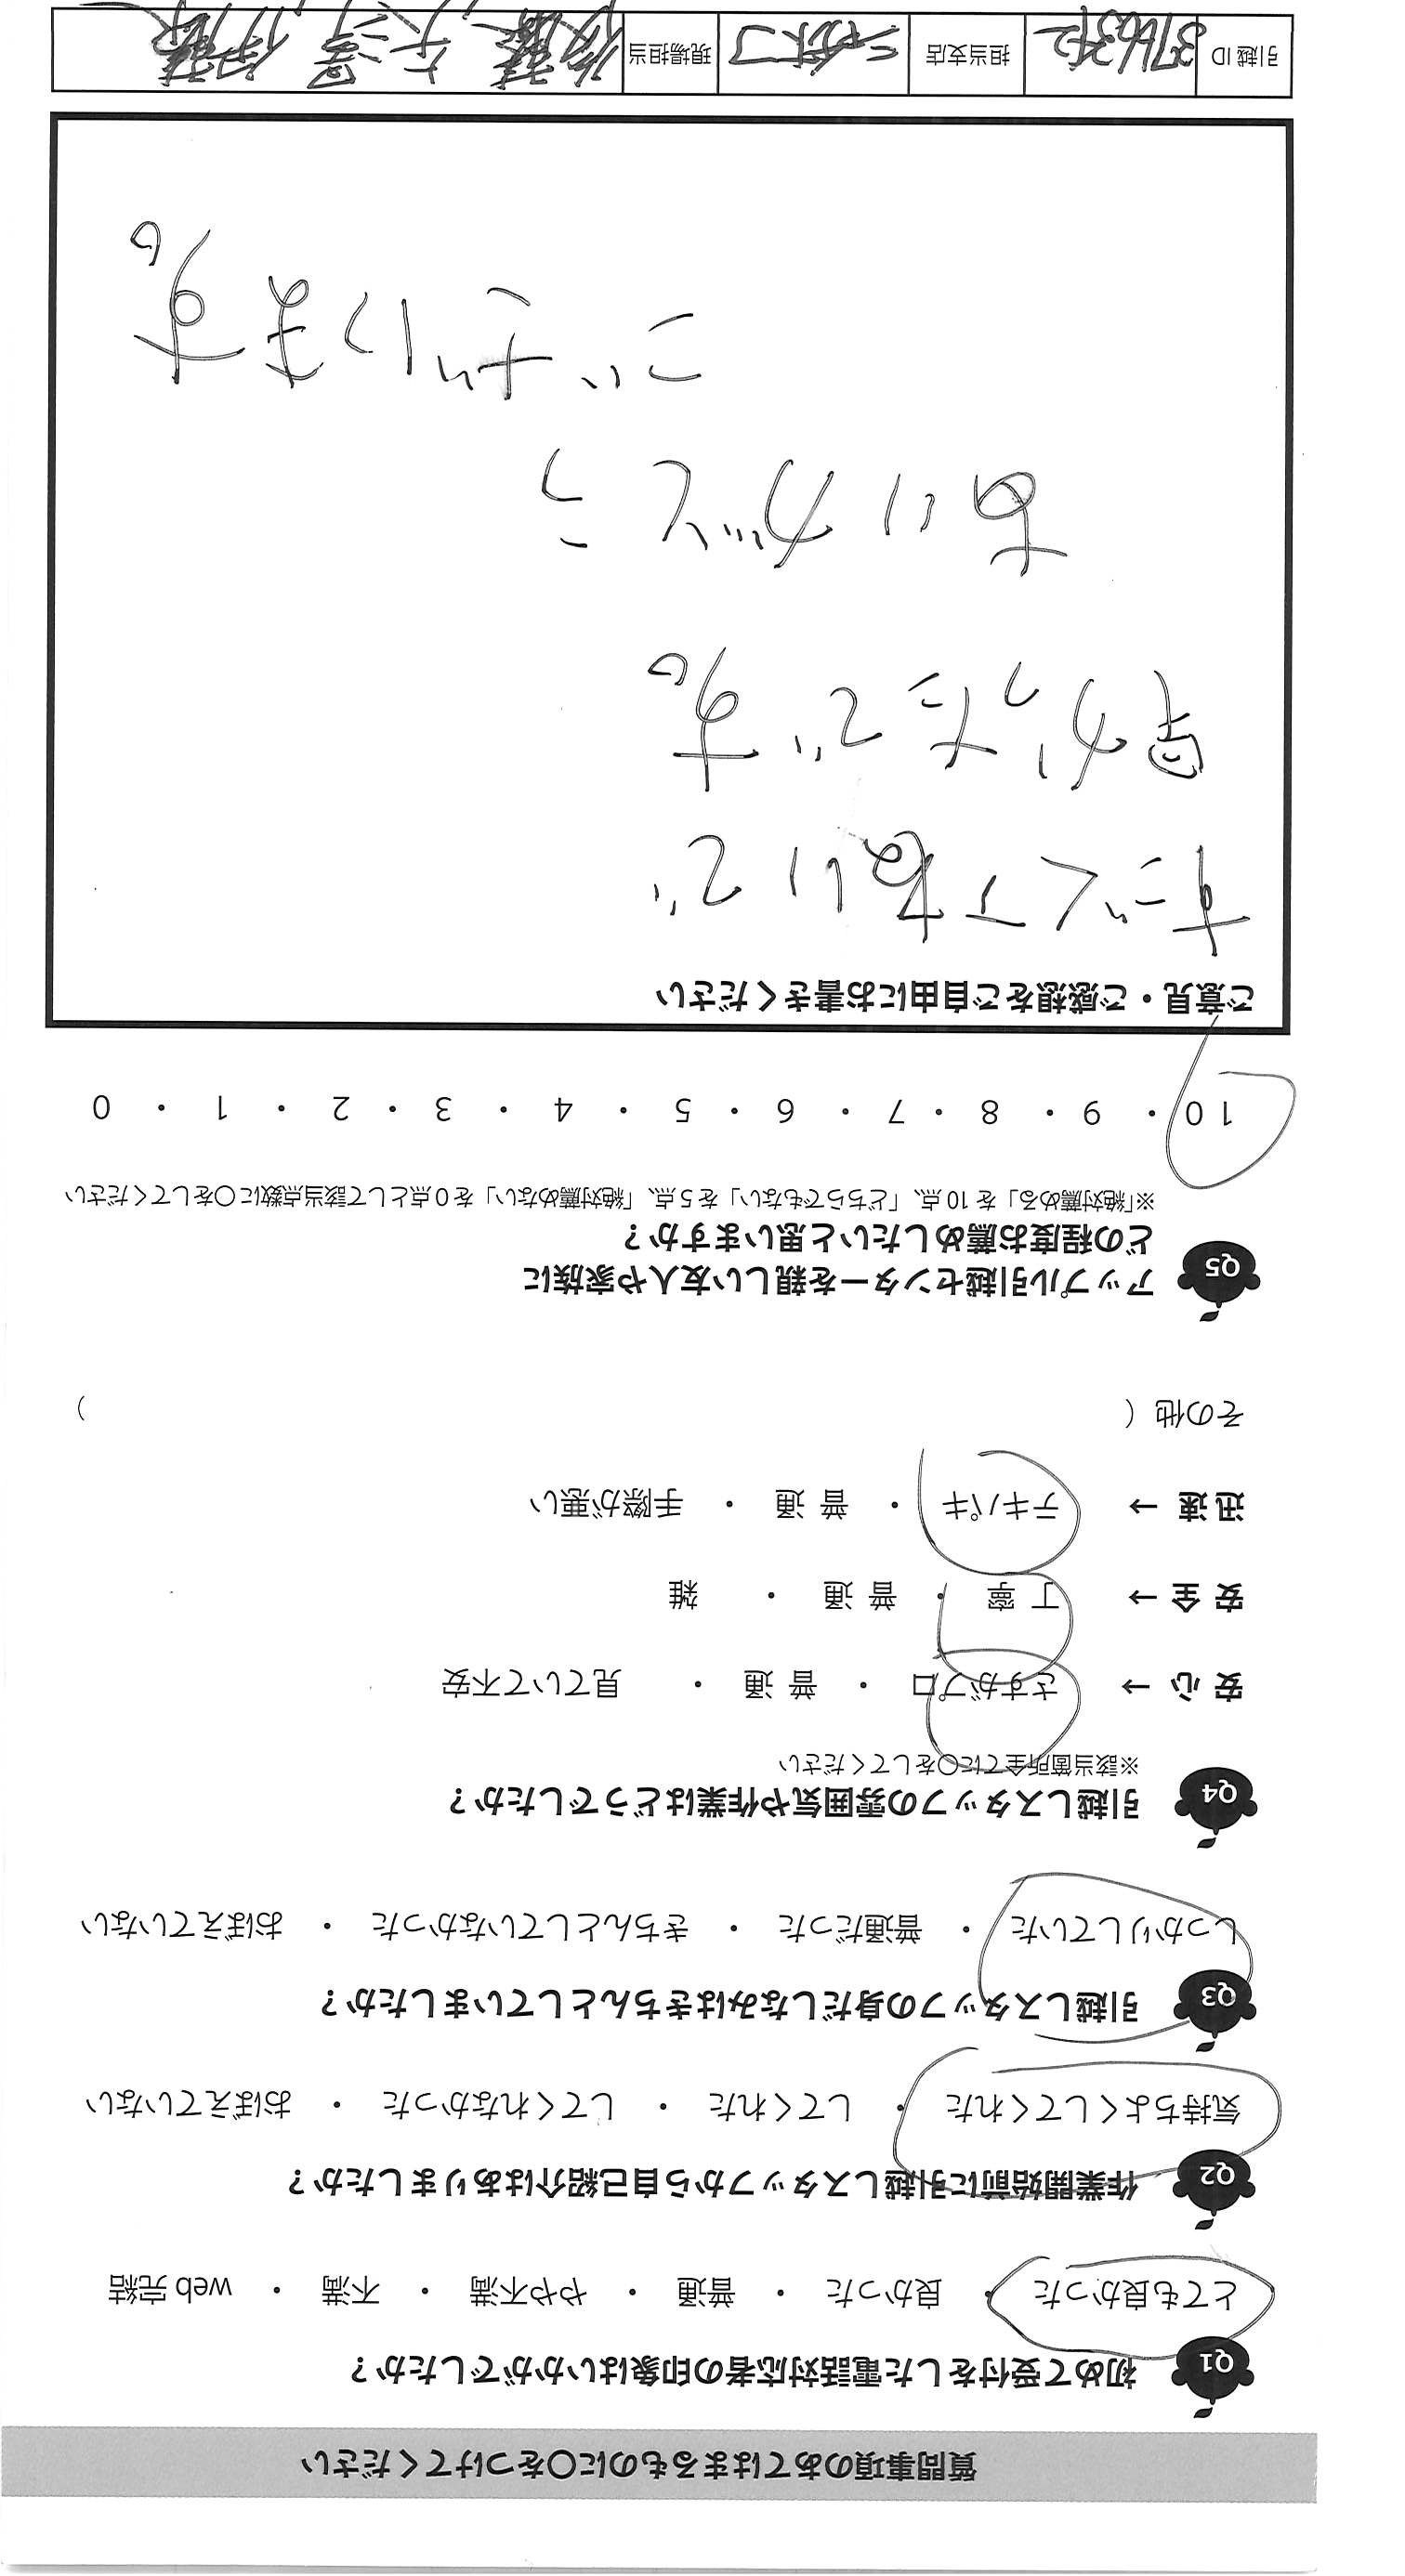 質問事項のあてはまるものに○をつけてください
Q1 初めて受付をした電話対応者の印象はいかがでしたか？
とても良かった ・ 良かった ・ 普通 ・ やや不満 ・ 不満 ・ web 完結
Q2 作業開始前に引越しスタッフから自己紹介はありましたか？
気持ちよくしてくれた ・ してくれた ・ してくれなかった ・ おぼえていない
Q3 引越しスタッフの身だしなみはきちんとしていましたか？
しっかりしていた ・ 普通だった ・ きちんとしていなかった ・ おぼえていない
Q4 引越しスタッフの雰囲気や作業はどうでしたか？
※該当箇所全てに○をしてください
安心 → さすがプロ ・ 普通 ・ 見ていて不安
安全 → 丁寧 ・ 普通 ・ 雑
迅速 → テキパキ ・ 普通 ・ 手際が悪い
その他（ ）
Q5 アップル引越センターを親しい友人や家族に
どの程度お薦めしたいと思いますか？
※「絶対薦める」を10点、「どちらでもない」を5点、「絶対薦めない」を0点として該当点数に○をしてください
10 ・ 9 ・ 8 ・ 7 ・ 6 ・ 5 ・ 4 ・ 3 ・ 2 ・ 1 ・ 0
ご意見・ご感想をご自由にお書きください
すごく丁ねいで
早かったです。
ありがとう
ございます。
引越ID 担当支店 現場担当 後藤 大澤 伊藤